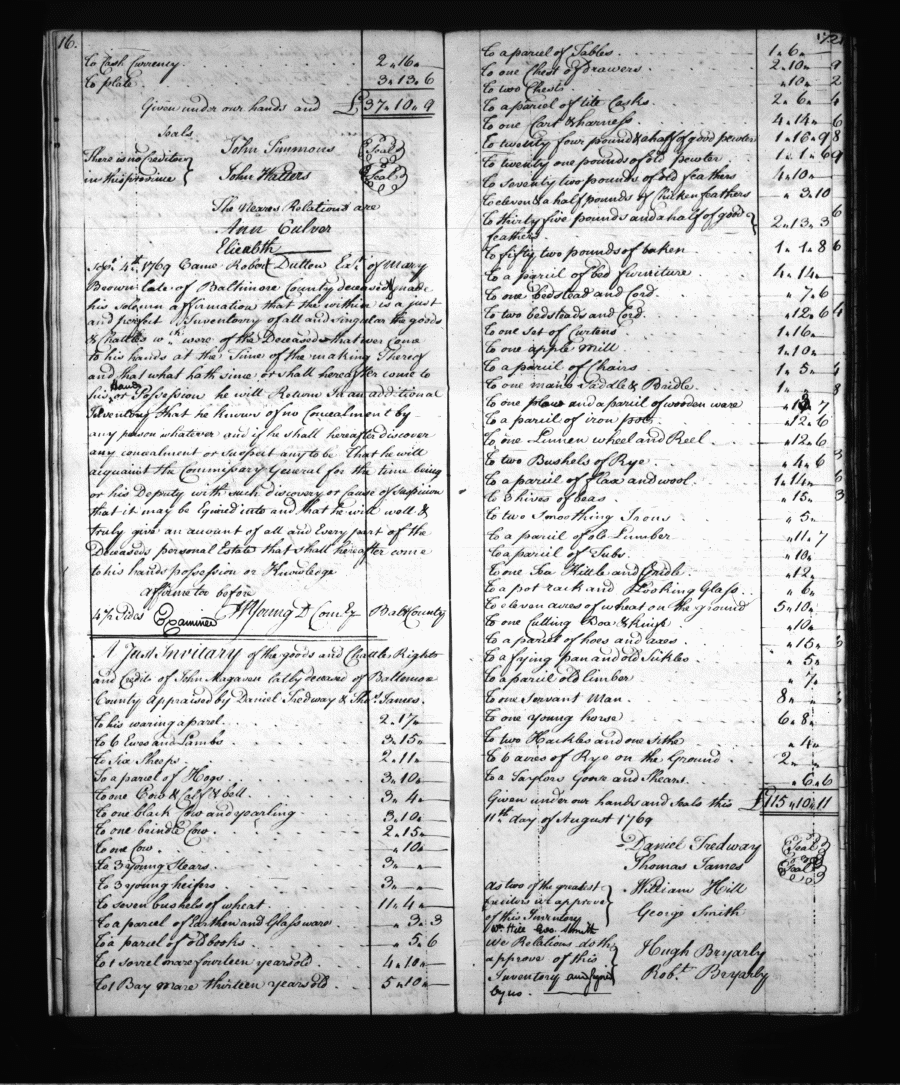 16.
To Cash Currency 2 „ 16 „
To plate 3 „ 13 „ 6
Given under our hands and £37 „ 10 „ 9
seals
John Simmons Seal
There is no Creditors
in this province John Walters Seal
The Neares Relations are
Ann Culver
Elizabeth
4th 1769 Came Robert Dutton Exr. of Mary
Brown late of Baltimore County deceased & made
his solemn affirmation that the within is a just
and perfect Inventory of all and singular the goods
& Chattles wch were of the Deceaseds that ever Came
to his hands at the Time of the making Thereof
and that what hath since or shall hereafter come to
his hands or Possession he will Return In an additional
Inventory that he knows of no Concealment by
any person whatever and if he shall hereafter discover
any concealment or suspect any to be That he will
acquaint the Commissary General for the time being
or his Deputy with such discovery or Cause of Suspicion
that it may be Iquired into and that he will well &
truly give an account of all and Every part of the
Deceaseds personal Estate that shall hereafter come
to his hands possession or Knowledge
Affirmed to before
Sides Examined Young D Com Balt County
A Just Invitary of the goods and Chattles Rights
and Credits of John Magaven late deceased of Baltemore
County Appraised by Daniel Tredway & Thos. James.
To his waring aparel 2 „ 17 „
To 6 Ewes and Lambs 3 „ 15 „
To Six Sheeps 2 „ 11 „
To a parel of Hogs 3 „ 10 „
To one Cow & Calf & bell 3 „ 4 „
To one black Cow and yearling 3 „ 10 „
To one brindle Cow 2 „ 15 „
To one Cow „ 10 „
To 3 young Stears 3 „ „
To 3 young heifers 3 „ „
To seven bushels of wheat 11 „ 4 „
To a parcel of Earthen and Glass ware „ 3 „ 3
To a parcel of old books „ 5 „ 6
To 1 sorrel mare fourteen years old 4 „ 10 „
To 1 Bay mare thirteen years old 5 „ 10 „
To a parcel of Tables 1 „ 6 „
To one Chest of Drawers 2 „ 10 „
To two Chests „ 10 „
To a parcel of tite Casks 2 „ 6 „
To one Cart & harness 4 „ 14 „
To twenty four pound & a half of good pewter 1 „ 16 „ 9
To twenty one pounds of old pewter 1 „ 1 „ 6
To seventy two pounds of old feathers 4 „ 10 „
To eleven & a half pounds of Chicken feathers „ 3 „ 10
To thirty five pounds and a half of good
feathers 2 „ 13 „ 3
To fifty two pounds of baken 1 „ 1 „ 8
To a parcil of bed furniture 4 „ 14 „
To one bedstead and Cord „ 7 „ 6
To two bedsteads and Cord „ 12 „ 6
To one set of Curtens 1 „ 16 „
To one apple Mill 1 „ 10 „
To a parcil of Chairs 1 „ 5 „
To one mans Saddle & Bridle 1 „ „
To one plow and a parcil of wooden ware
To a parcil of iron pots „ 12 „ 6
To one Linnen wheel and Reel „ 12 „ 6
To two Bushels of Rye „ 4 „ 6
To a parcil of flax and wool 1 „ 14 „
To 3 hives of beas „ 15 „
To two Smoothing Irons „ 5 „
To a parcil of old Lumber „ 11 „ 7
To a parcil of Tubs „ 10 „
To one Tea Kittle and Cradle „ 12 „
To a pot rack and Looking Glass „ 6 „
To eleven acres of wheat on the ground 5 „ 10 „
To one Cutting Box & Knife „ 10 „
To a parcel of hoes and axes „ 15 „
To a frying pan and old Sickles „ 5 „
To a parcil old limber „ 7 „
To one Servant Man 8 „ „
To one young horse 6 „ 8 „
To two Hackles and one Sithe „ 4 „
To 6 acres of Rye on the Ground 2 „ „
To a Taylors Goose and Shears „ 6 „ 6
Given under our hands and seals this £115 „ 10 „ 11
11th day of August 1769
Daniel Tredway Seal
Thomas James Seal
As two of the greatest
Creditors we approve William Hill
of this Inventory George Smith
Wm. Hill Geo. Smith
We Relations doth
approve of this Hugh Bryarly
Inventory and signed Robt. Bryarly
by us.